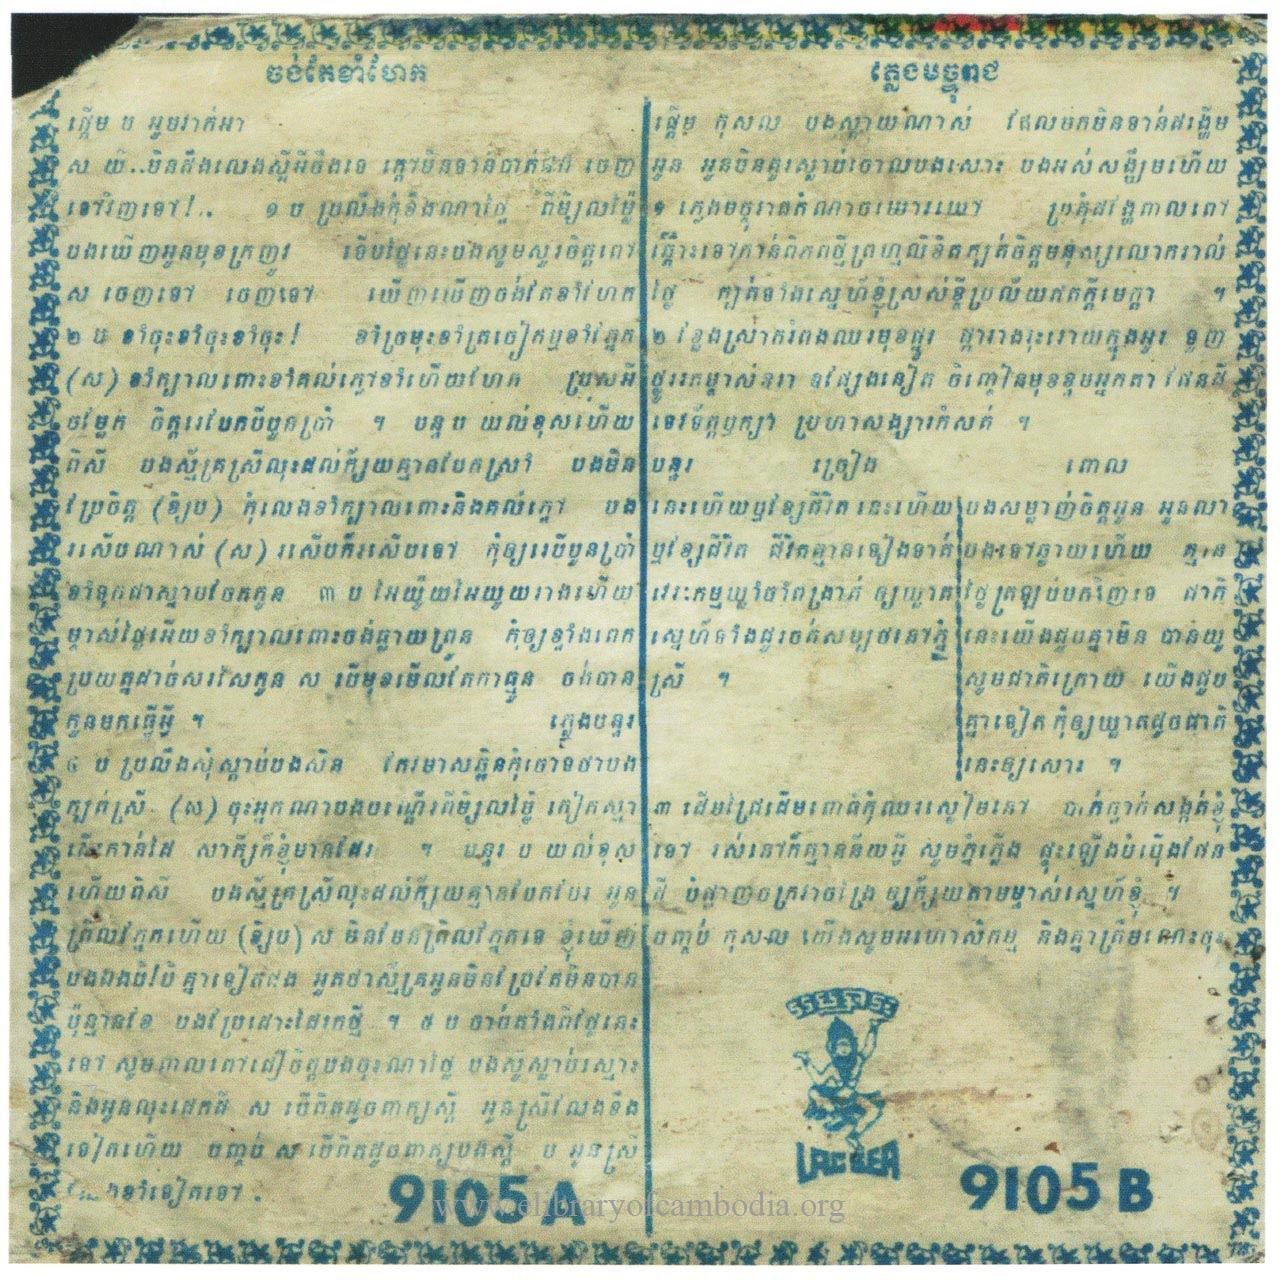 ចង់តែខាំហែក
ផ្ដើម ប អូមវាក់អា
ស យី..មិនដឹងលេងស្អីអីចឹងទេ ក្ដៅមិនទាន់បាត់ផង ចេញ
ទៅវិញទៅ!.. ១ ប ប្រលឹងកុំខឹងណាថ្លៃ ពីម្សិលម៉្ងៃ
បងឃើញអូនមុខក្រញូវ ទើបថ្ងៃនេះបងសូមសួរចិត្តពៅ
ស ចេញទៅ ចេញទៅ ឃើញឃើញចង់តែខាំហែក
២ ប ខាំចុះខាំចុះខាំចុះ! ខាំច្រមុះខាំត្រចៀកឬខាំភ្នែក
(ស) ខាំក្បាលពោះខាំគល់ក្លៅខាំហើយហែក ប្រុសអី
ចម្លែក ចិត្តរបែកបីបួនប្រាំ ។ បន្ទ ប យល់ខុសហើយ
ពិសី បងស្ម័គ្រស្រីលុះដល់ក្ស័យគ្មានបែកស្រាំ បងមិន
ប្រែចិត្ត (ឌិ្យប) កុំលេងខាំក្បាលពោះនិងគល់ក្លៅ បង
រសើបណាស់ (ស) រសើបក៏រសើបទៅ កុំឲ្យរបីបួនប្រាំ
ខាំទុកជាស្នាមចែកកូន ៣ ប អែយ៉ូយអែយូយរាងហើយ
ម្ចាស់ថ្លៃអើយខាំក្បាលពោះចង់ធ្លាយព្រួន កុំឲ្យខ្ទាំងពេក
ប្រយ័ត្នដាច់សរសៃកូន ស បើមុខមើលតែកាធ្មូន ចង់បាន
កូនមកធ្វើអ្វី ។ ភ្លេងបន្ទរ
៤ ប ប្រលឹងសុំស្ដាប់បងសិន កែវមាសឆ្លិនកុំចោទថាបង
ក្បត់ស្រី (ស) ចុះអ្នកណាបងបណ្ដើរពីម្សិលម៉្ងៃ កៀកស្មា
កាន់ដៃ សាក្សីក៏ខ្ញុំមានដែរ ។ បន្ទរ ប យល់ខុស
ហើយពិសី បងស្ម័គ្រស្រីលុះដល់ក្ស័យគ្មានបែកបែរ អូន
ព្រិលភ្នែកហើយ (ឌិ្យប) ស មិនមែនព្រិលភ្នែកទេ ខ្ញុំឃើញ
បងឯងបី!បិ គ្នាទៀតផង អួតថាស្ម័គ្រអូនមិនប្រែតែមិនបាន
ប៉ុន្មានខែ បងប្រែដោះដៃរកថ្មី ។ ៥ ប ចាប់តាំងពីថ្ងៃនេះ
ទៅ សូមពាលពៅជឿចិត្តបងចុះណាថ្លៃ បងស៊ូស្លាប់ស្មោះ
និងអូនលុះដេកដី ស បើពិតដូចពាក្យស្ដី អូនស្រីលែងខឹង
ទៀតហើយ បញ្ចប់ ស បើពិតដូចពាក្យបងស្ដី ប អូនស្រី
លែងខាំទៀតទៅ .
9105 A
ភ្លេងមច្ចុរាជ
ផ្ដើម កុសល បងស្ដាយណាស់ ដែលមកមិនទាន់ដង្ហើម
អូន អូនមិនគួរស្លាប់ចោលបងសោះ បងអស់សង្ឃឹមហើយ
១ ភ្លេងមច្ចុរាតកំណាចឃោរឃៅ ប្រគុំដង្ហែពាលពៅ
ឆ្ពោះទៅកាន់ពិភពថ្មីព្រហ្មលិខិតក្បត់ចិត្តមនុស្សលោករាល់
ថ្ងៃ ក្បត់ទាំងស្នេហ៍ខ្ញុំស្រស់ខ្ចីប្រល័យឥតក្ដីមេត្តា ។
២ ខ្លែងស្រាករំពងឈរមុខផ្នូរ ផ្ការាងរុះរោយក្នុងអូរ ទួញ
ផ្ដែផ្ដាំនៀត ចិញ្ចៀនមុខខ្ទមអ្នកតា ផែនដី
ទេវទ័ត្តឫក្សា ប្រហាសង្សារកំសត់ ។
បន្ទរ ច្រៀង ពោល
នេះហើយឬវិខ្យជីវិត នេះហើយ
ឬវិខ្យជីវិត ជីវិតគ្មានទៀងទាត់
វេរៈកម្មឃ្លាំចាំពង្រាត់ ឲ្យឃ្លាត
ស្នេហ៍ទាំងជួរចត់សម្បថនៅភ្នំ
ស្រី ។
បងសម្លាញ់ចិត្តអូន អូនលា
បងទៅឆ្ងាយហើយ គ្មាន
ថ្ងៃត្រឡប់មកវិញទេ ជាតិ
នេះយើងជួបគ្នាមិន បានយូ
សូមជាតិក្រោយ យើងជួប
គ្នាទៀត កុំឲ្យឃ្លាតដូចជាតិ
នេះឲ្យសោះ ។
៣ ដើមជ្រៃដើមពោធិ៍កុំឈរស្ងៀមនៅ បាក់ធ្លាក់សង្កត់ខ្ញុំ
ទៅ រស់នៅក៏គ្មានន័យអ្វី សូមភ្នំភ្លើង ផ្ទុះឡើងបំប៉ើងផែន
ដី បំផ្លាញចក្រវាចង្រៃ ឲ្យក្ស័យតាមម្ចាស់ស្នេហ៍ខ្ញុំ ។
បញ្ចប់ កុសល យើងសូមអហោសិកម្ម និងគ្នាត្រឹមណេះចុះ
LAC SEA
9105 B
www.elibraryofcambodia.org